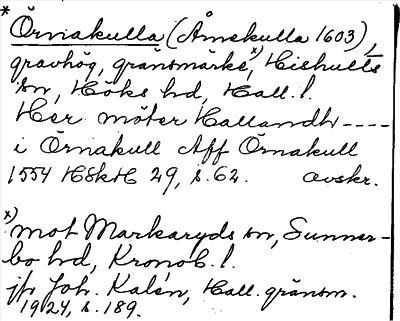 * Örnakulla (Årnekulla 1603),
gravhög, gränsmärke x), Hishults
sn, Höks hd, Hall. l.
Her möter Hallandh ----
i Örnakull Aff Örnakull
1554 HSkH 29, s. 62. avskr.
x) mot Markaryds sn, Sunner-
bo hd, Kronob. l.
jfr Joh. Kalén, Hall. gränsm.
1924, s. 189.